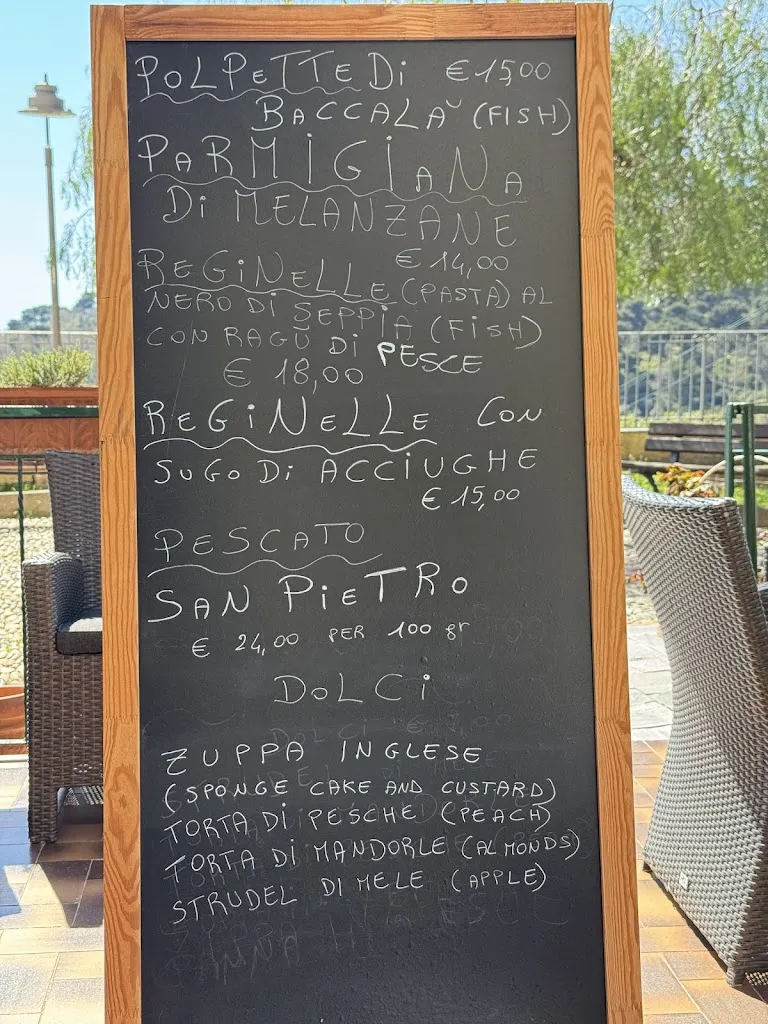 POLPETTE Di €15,00
BACCALA˘ (FISH)
PARMIGIANA
Di MELANZANE
€ 14,00
REGINELLE (PASTA) AL
NERO DI SEPPIA (FISH)
CON RAGÙ Di PESCE
€ 18,00
REGINELLE CON
SUGO Di ACCIUGHE
€ 15,00
PESCATO
SAN PIETRO
€ 24,00 PER 100 gr
DOLCi
ZUPPA INGLESE
(SPONGE CAKE AND CUSTARD)
TORTA DI PESCHE (PEACH)
TORTA DI MANDORLE (ALMONDS)
STRUDEL DI MELE (APPLE)